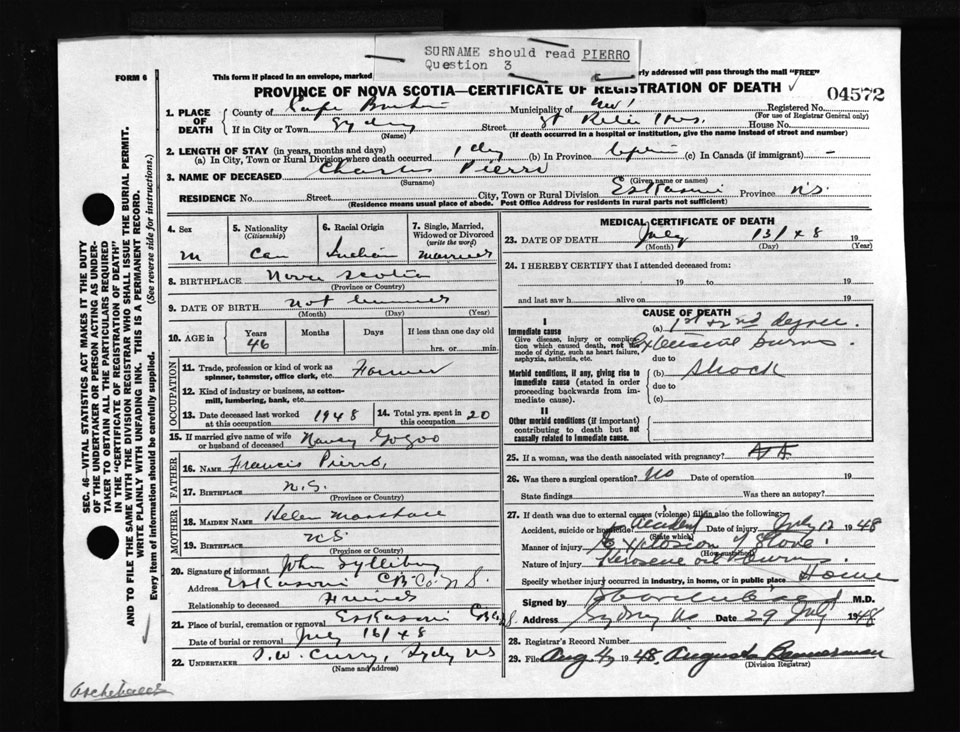 SURNAME should read PIERRO
Question 3
FORM 6
This form if placed in an envelope, marked rly addressed will pass through the mail "FREE"
PROVINCE OF NOVA SCOTIA—CERTIFICATE OF REGISTRATION OF DEATH
04572
1. PLACE OF DEATH
County of Cape Breton Municipality of Registered No.
(For use of Registrar General only)
If in City or Town Sydney Street St Rita Hos. House No.
(Name) (If death occurred in a hospital or institution, give the name instead of street and number)
2. LENGTH OF STAY (in years, months and days)
(a) In City, Town or Rural Division where death occurred 1 day (b) In Province Life (c) In Canada (if immigrant) -
3. NAME OF DECEASED Charles Pierro
(Surname) (Given name or names)
RESIDENCE No. Street City, Town or Rural Division Eskasoni Province N.S.
(Residence means usual place of abode. Post Office Address for residents in rural parts not sufficient)
4. Sex
M
5. Nationality
(Citizenship)
Can
6. Racial Origin
Indian
7. Single, Married, Widowed or Divorced
(write the word)
Married
8. BIRTHPLACE Nova Scotia
(Province or Country)
9. DATE OF BIRTH not
(Month) (Day) (Year)
10. AGE in
Years Months Days If less than one day old
46 hrs. or min.
OCCUPATION
11. Trade, profession or kind of work as spinner, teamster, office clerk, etc. Farmer
12. Kind of industry or business, as cotton-mill, lumbering, bank, etc.
13. Date deceased last worked at this occupation 1948
14. Total yrs. spent in this occupation 20
15. If married give name of wife or husband of deceased Nancy Gogoo
FATHER
16. NAME Francis Pierro,
17. BIRTHPLACE N.S.
(Province or Country)
MOTHER
18. MAIDEN NAME Helen Marshall
19. BIRTHPLACE N.S
(Province or Country)
20. Signature of informant John
Address Eskasoni C.B. Co. N.S.
Relationship to deceased Friend
21. Place of burial, cremation or removal Eskasoni CB Co N.S.
Date of burial or removal July 16/48
22. UNDERTAKER T.W. Curry, Sydy NS
(Name and address)
MEDICAL CERTIFICATE OF DEATH
23. DATE OF DEATH July 13/48 19
(Month) (Day) (Year)
24. I HEREBY CERTIFY that I attended deceased from:
19 to 19
and last saw h alive on 19
CAUSE OF DEATH
I
Immediate cause
Give disease, injury or complication which caused death, not the mode of dying, such as heart failure, asphyxia, asthenia, etc.
(a) 1st & 2nd degree.
Extensive burns
due to
Morbid conditions, if any, giving rise to immediate cause (stated in order proceeding backwards from immediate cause).
(b) Shock
due to
(c)
II
Other morbid conditions (if important) contributing to death but not causally related to immediate cause.
25. If a woman, was the death associated with pregnancy?
26. Was there a surgical operation? No Date of operation 19
State findings Was there an autopsy?
27. If death was due to external causes (violence) fill in also the following:
Accident, suicide or homicide? Accident Date of injury July 12 1948
(State which)
Manner of injury Explosion of Stove
(How sustained)
Nature of injury Kerosene oil Burns
Specify whether injury occurred in industry, in home, or in public place Home
Signed by M.D.
Address Sydney N.S. Date 29 July 1948
28. Registrar's Record Number
29. File Aug 4 1948 Augusta Bannerman
(Division Registrar)
SEC. 46—VITAL STATISTICS ACT MAKES IT THE DUTY
OF THE UNDERTAKER OR PERSON ACTING AS UNDER-
TAKER TO OBTAIN ALL THE PARTICULARS REQUIRED
IN THE "CERTIFICATE OF REGISTRATION OF DEATH"
AND TO FILE THE SAME WITH THE DIVISION REGISTRAR WHO SHALL ISSUE THE BURIAL PERMIT.
WRITE PLAINLY WITH UNFADING INK. THIS IS A PERMANENT RECORD.
Every item of information should be carefully supplied. (See reverse side for instructions.)